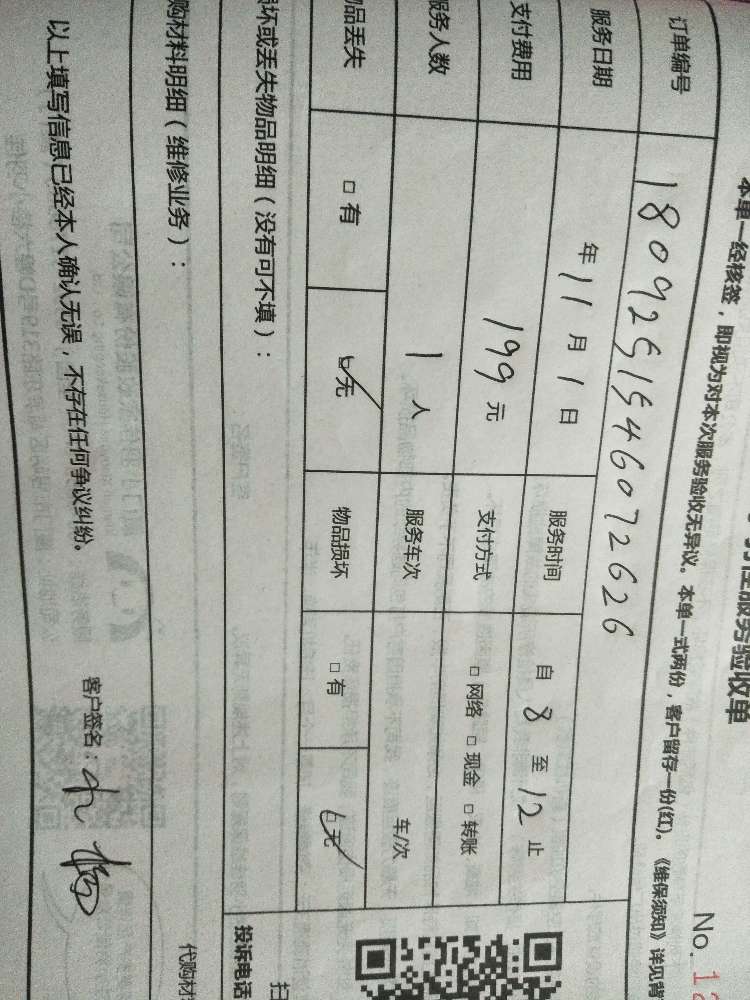 服务验收单
No. 1
本单一经核签，即视为对本次服务验收无异议。本单一式两份，客户留存一份(红)。《维保须知》详见背
订单编号 180925154607262 6
服务日期 年 11 月 1 日 服务时间 自 8 至 12 止
支付费用 199 元 支付方式 □ 网络 □ 现金 □ 转账
服务人数 1 人 服务车次 车/次
品丢失 □ 有 □ 无 物品损坏 □ 有 □ 无
坏或丢失物品明细（没有可不填）：
扫
投诉电话
购材料明细（维修业务）：
代购材
以上填写信息已经本人确认无误，不存在任何争议纠纷。
客户签名：